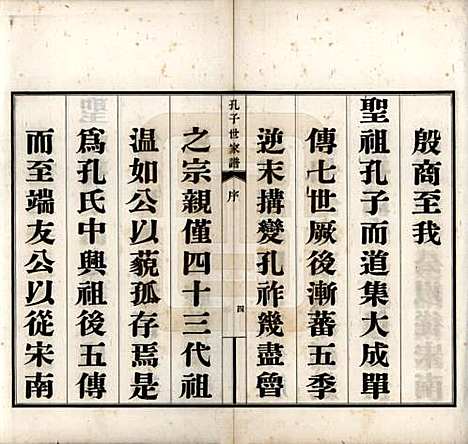 殷商至我
聖祖孔子而道集大成單
傳七世厥後漸蕃五季
逆末搆變孔祚幾盡曾
孔子世家譜
序
四
之宗親僅四十三代祖
温如公以藐孤存焉是
爲孔氏中興祖後五傳
而至端友公以從宋南